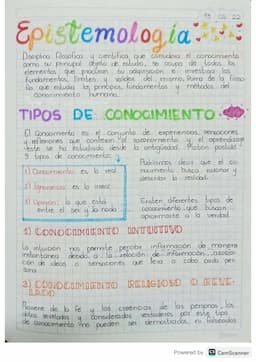 15 02 22
Epistemología
Disciplina filosófica y científica que considera el conocimiento
como su principal objeto de estudio, se ocupa de todos los
elementos que procuran su adquisición e investiga los
fundamentos, límites y validez del mismo. Rama de la filoso
fía que estudia los principios, fundamentos y métodos del
conocimiento humano.
TIPOS DE CONOCIMIENTO
El Conocimiento es el conjunto de experiencias, sensaciones
y reflexiones que conllevan al razonamiento y el aprendizaje
este se ha estudiado desde la antigüedad. Platón postuló
3 tipos de conocimiento:
1) Conocimiento: es lo real
2) Ignorancia: es lo irreal
3) Opinión: lo que está
entre el ser y la nada
decir que el co-
nocimiento busca razonar y
describir la realidad.
Existen diferentes tipos de
conocimiento que buscan
aproximarse a la verdad.
1) CONOCIMIENTO INTUITIVO
La intuición nos permite percibir información de manera
instantánea debido a la relación de información, asocia-
ción de ideas o sensaciones que lleva a cabo cada per
sona.
2) CONOCIMIENTO RELIGIOSO O REVE-
LADO
Proviene de la fe y las creencias de las personas, los
datos revelados y considerados verdaderos por este tipo
de conocimiento no pueden ser demostrados ni falseados
Powered by CS CamScanner